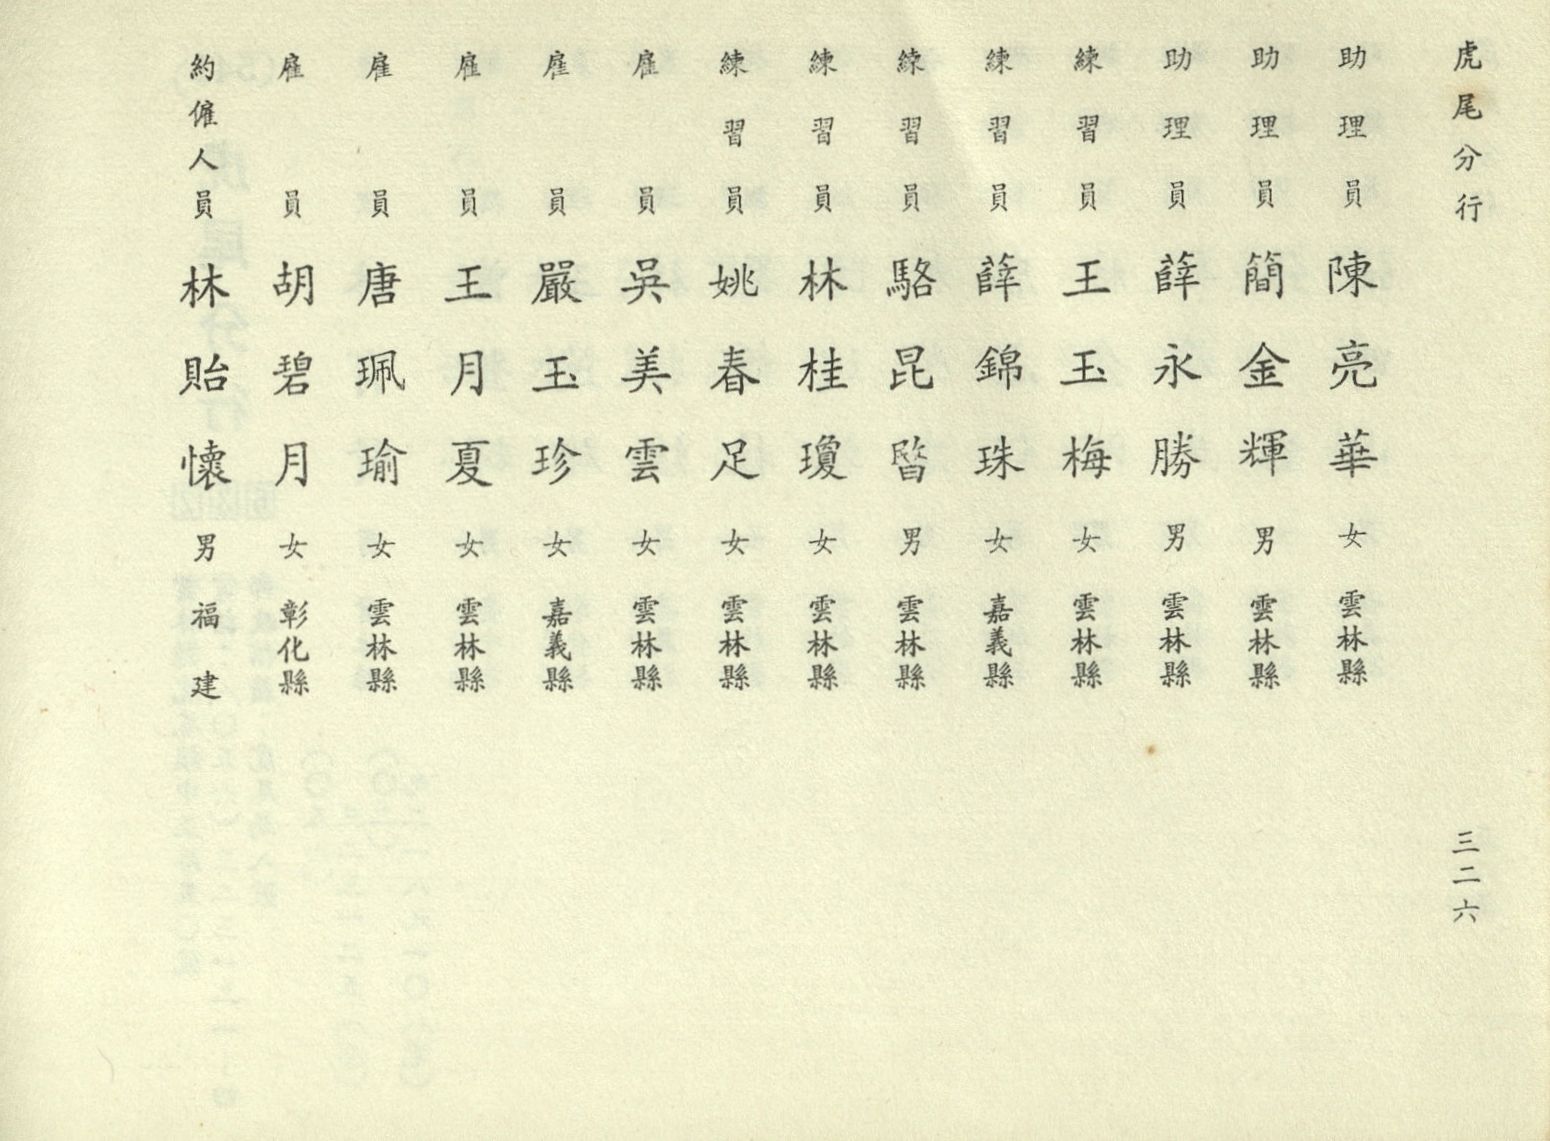 虎尾分行
三二六
助理員 陳亮華 女 雲林縣
助理員 簡金輝 男 雲林縣
助理員 薛永勝 男 雲林縣
練習員 王玉梅 女 雲林縣
練習員 薛錦珠 女 嘉義縣
練習員 駱昆 男 雲林縣
練習員 林桂瓊 女 雲林縣
練習員 姚春足 女 雲林縣
雇員 吳美雲 女 雲林縣
雇員 嚴玉珍 女 嘉義縣
雇員 王月夏 女 雲林縣
雇員 唐珮瑜 女 雲林縣
雇員 胡碧月 女 彰化縣
約僱人員 林貽懷 男 福建